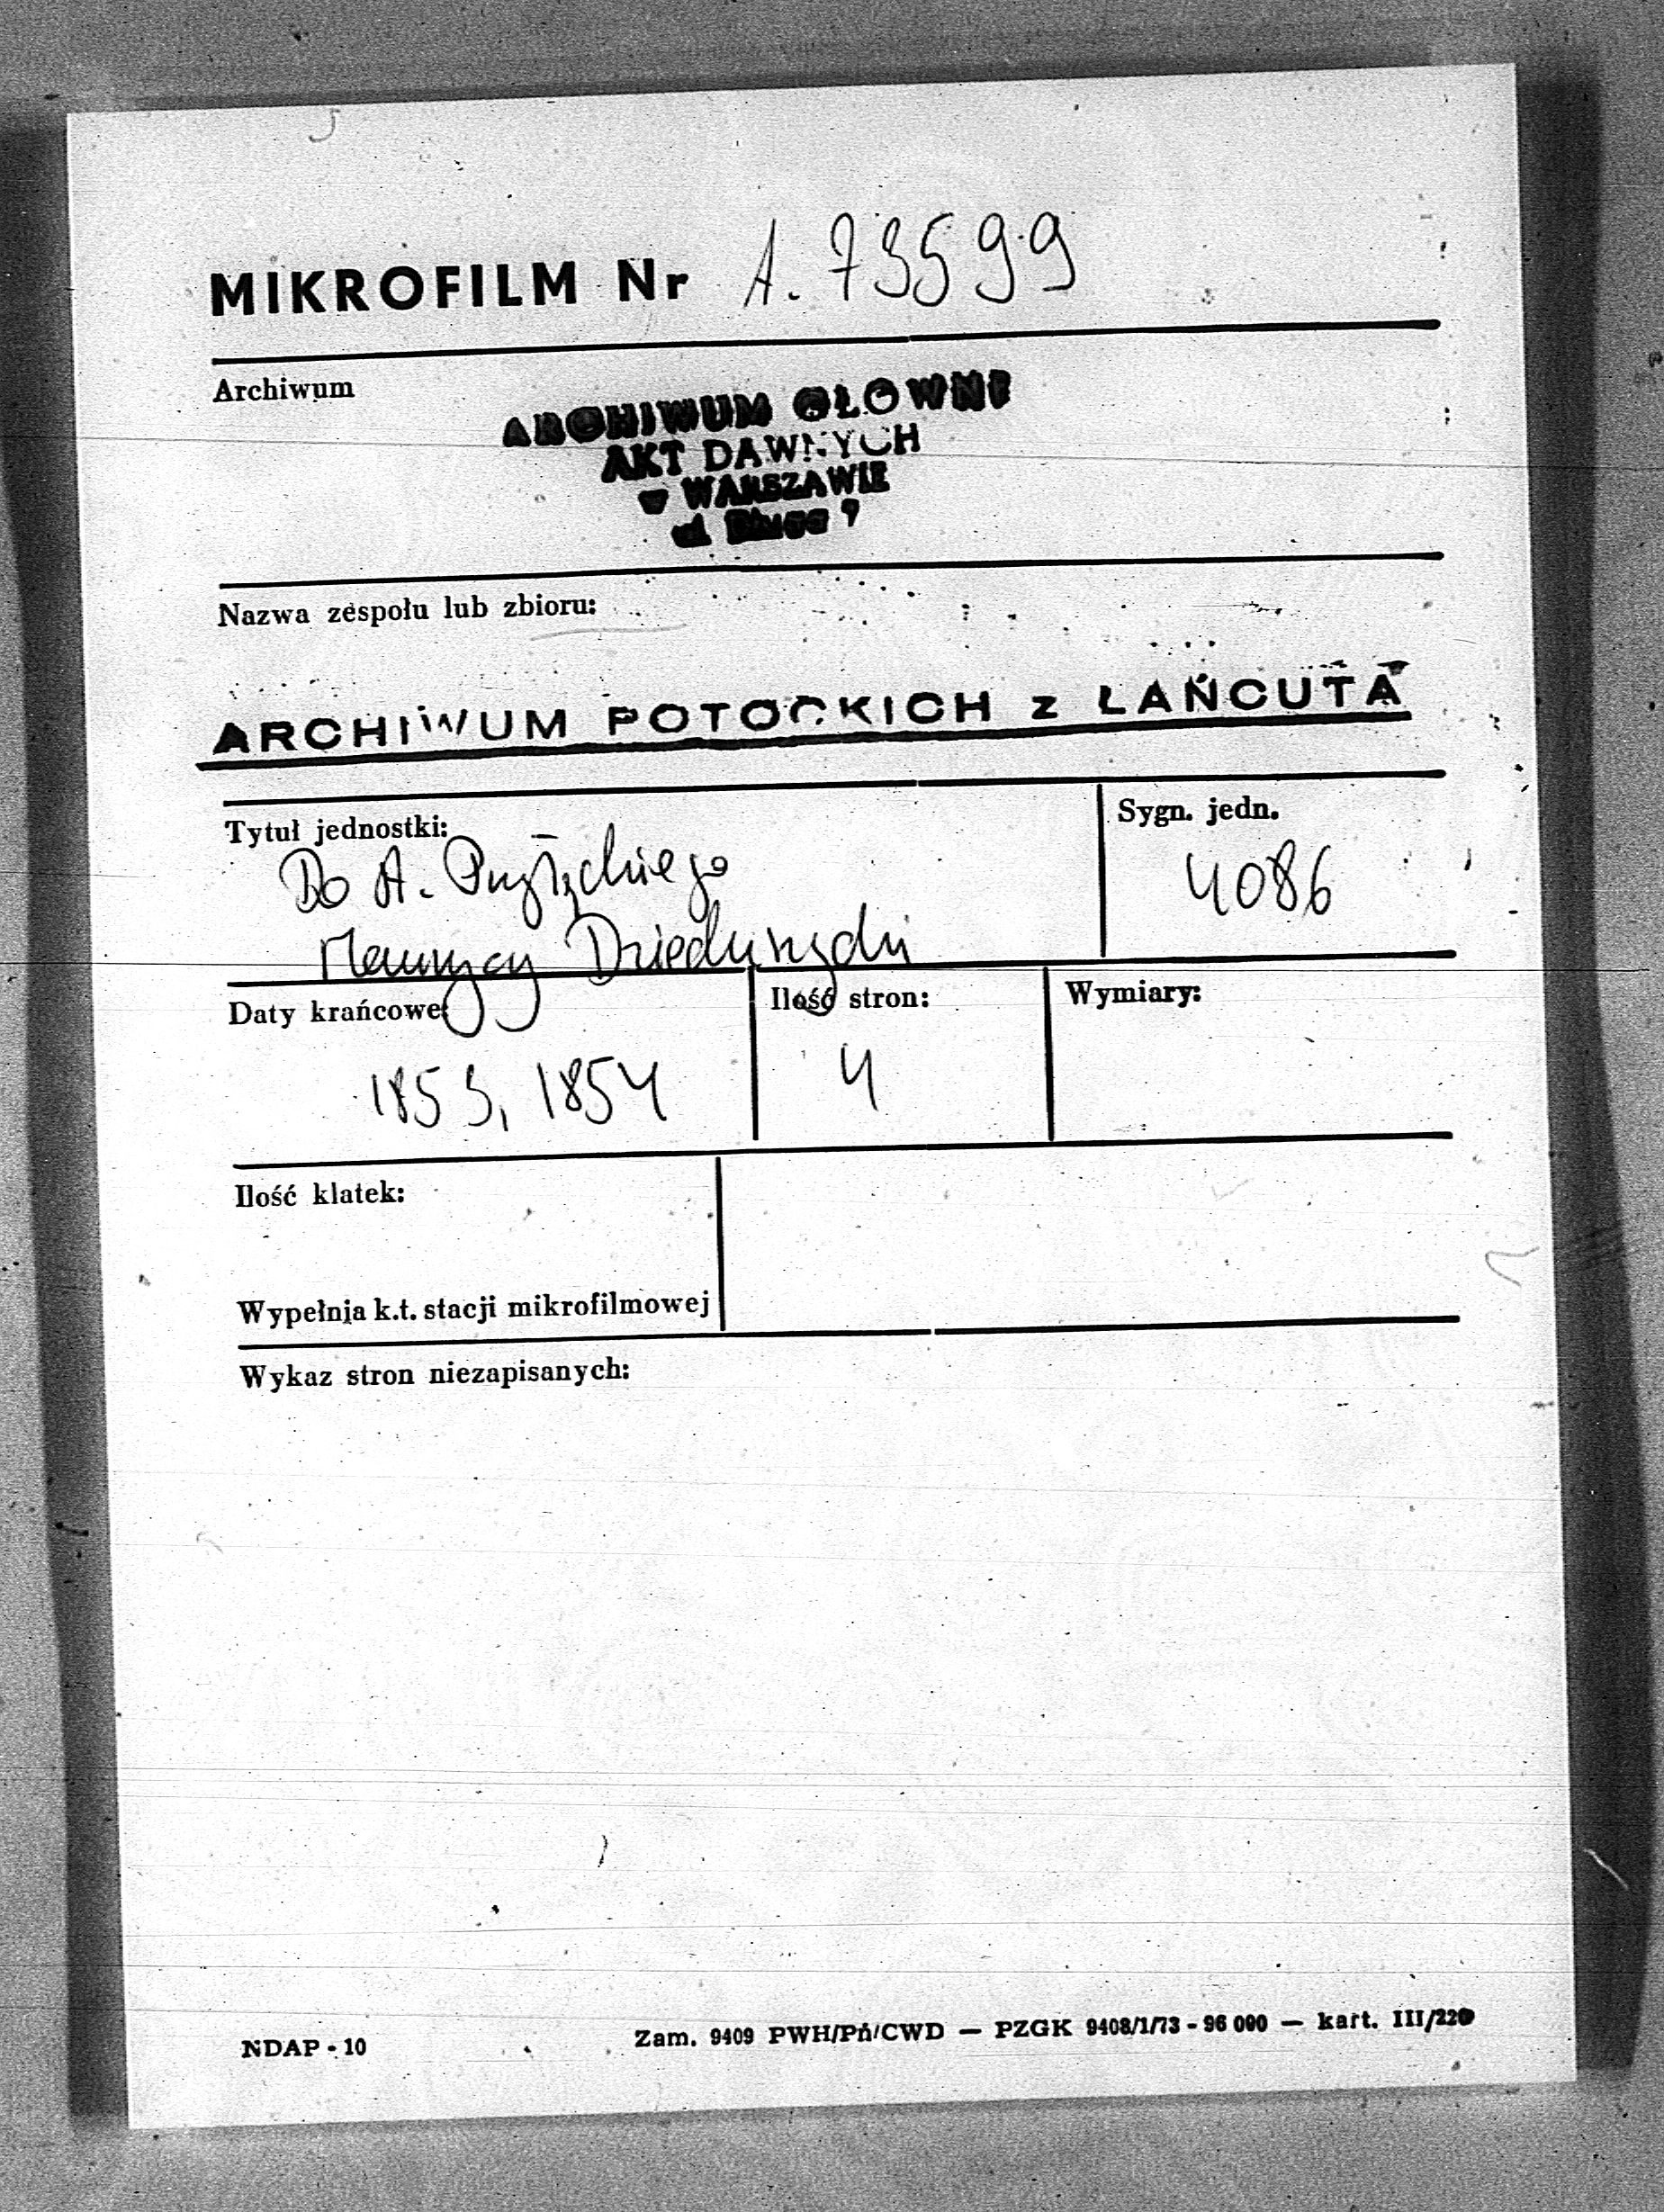 MIKROFILM Nr A. 73599
Archiwum
ARCHIWUM GŁOWNE
AKT DAWNYCH
w WARSZAWIE
ul 7
Nazwa zespołu lub zbioru:
ARCHIWUM POTOCKICH z ŁAŃCUTA
Tytuł jednostki:
Sygn. jedn.
Do A. Przyłęckiego
4086
Maurycy Dzieduszycki
Daty krańcowe:
Ilość stron:
Wymiary:
1853, 1854
4
Ilość klatek:
Wypełnia k.t. stacji mikrofilmowej
Wykaz stron niezapisanych:
NDAP - 10
Zam. 9409 PWH/Pń/CWD — PZGK 9408/1/73 - 96 000 — kart. III/220